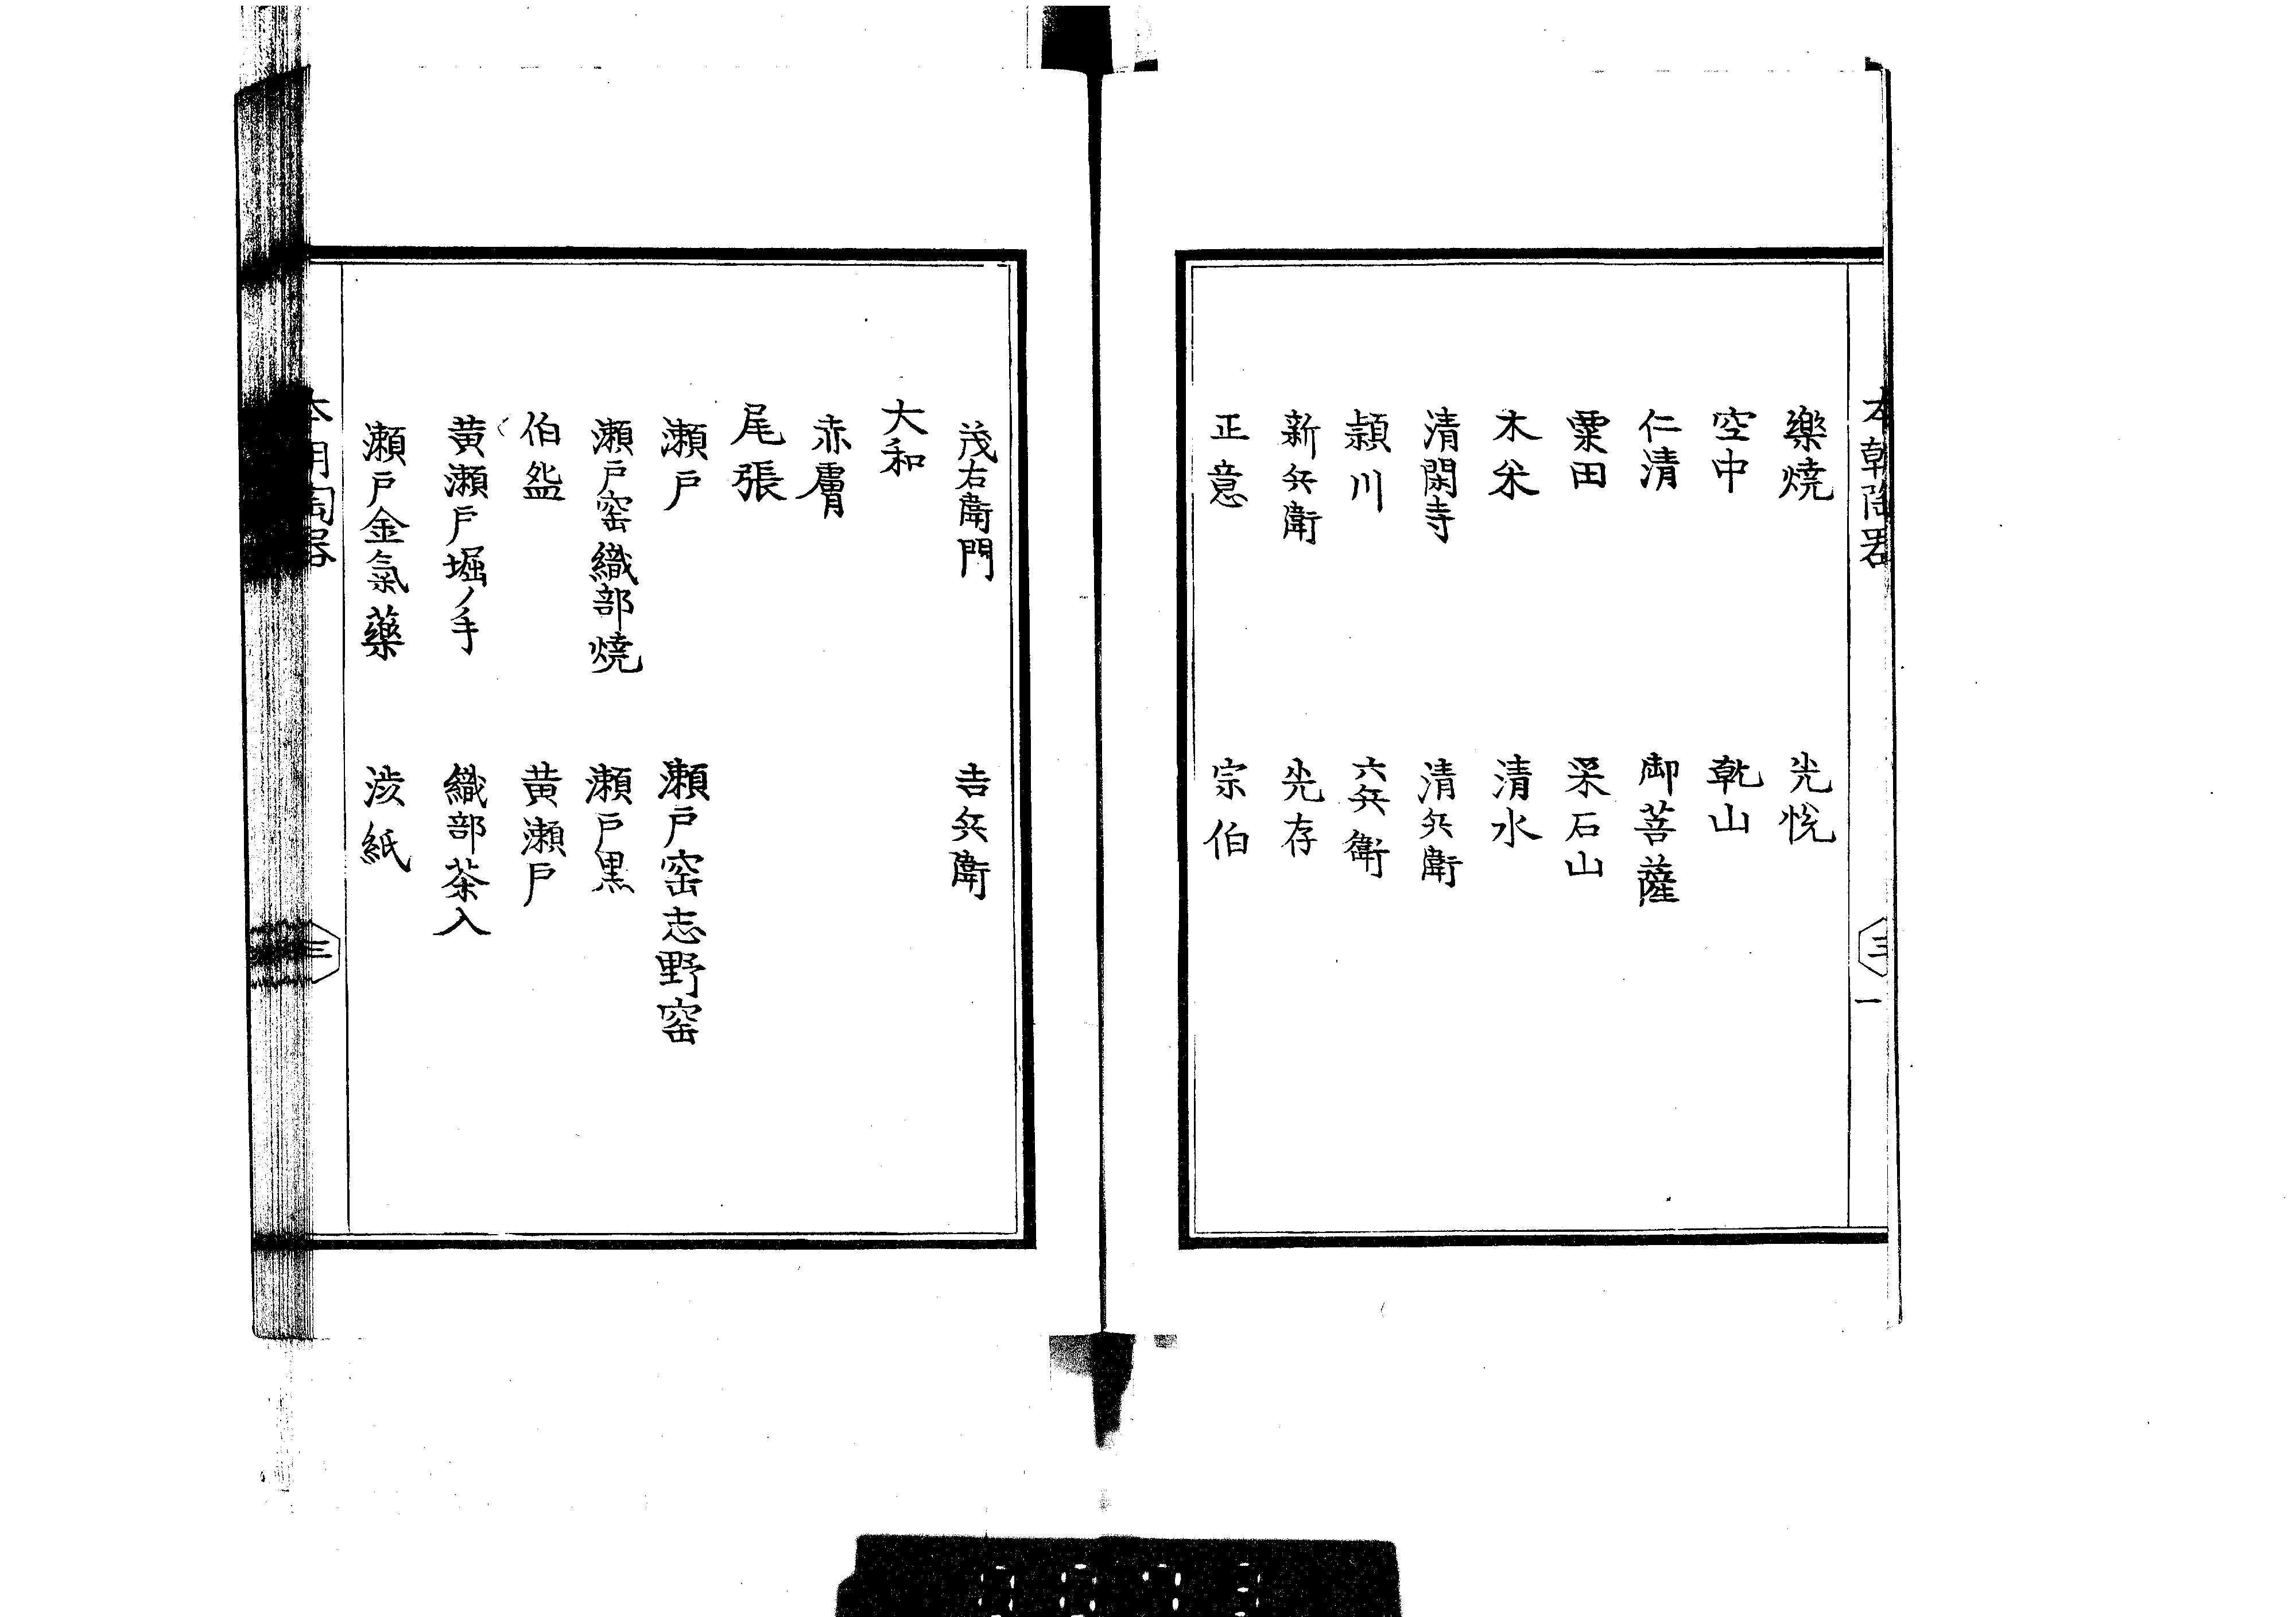 樂燒 光悅
空中 乾山
仁清 御菩薩
粟田 栗石山
木米 清水
清閑寺 清兵衛
頴川 六兵衛
新兵衛 光存
正意 宗伯
茂右衛門 吉兵衛
大和
赤膚
尾張
瀬戸 瀬戸窑志野窑
瀬戸窑織部燒 瀬戸黒
伯盌 黄瀬戸
黄瀬戸堀ノ手 織部茶入
瀬戸金氣藥 渋紙
三